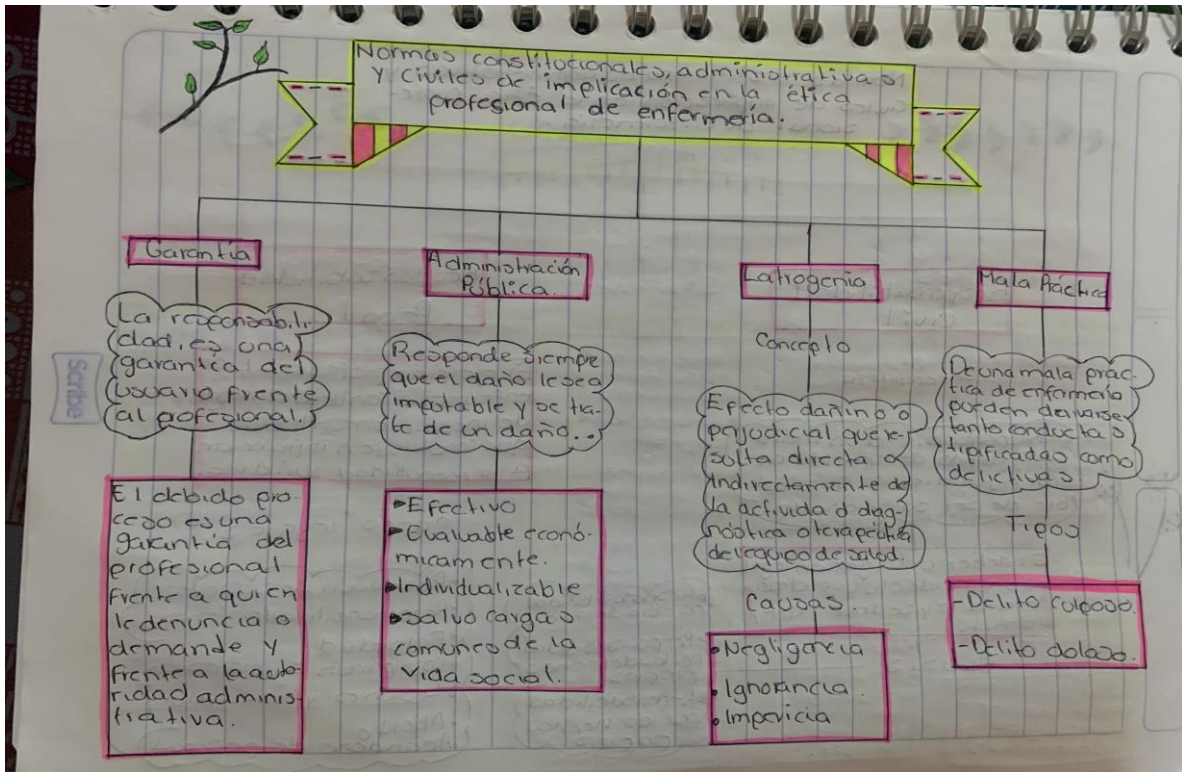 Normas constitucionales, administrativas
y civiles de implicación en la ética
profesional de enfermería.
Garantía
La responsabili-
dad, es una
garantía del
usuario frente
al profesional.
El debido pro-
ceso es una
garantía del
profesional
frente a quien
le denuncia o
demande y
frente a la auto-
ridad adminis-
trativa.
Administración
Pública.
Responde siempre
que el daño le sea
imputable y se tra-
te de un daño...
Efectivo
Evaluable econó-
micamente.
Individualizable
salvo cargas
comunes de la
vida social.
Latrogenia
Concepto
Efecto dañino o
perjudicial que re-
sulta directa o
indirectamente de
la actividad diag-
nóstica o terapéutica
del equipo de salud.
Causas.
Negligencia
Ignorancia.
Impericia
Mala Práctica
De una mala prác-
tica de enfermería
pueden derivarse
tanto conductas
tipificadas como
delictivas
Tipos
-Delito culposo.
-Delito doloso.
Scribe